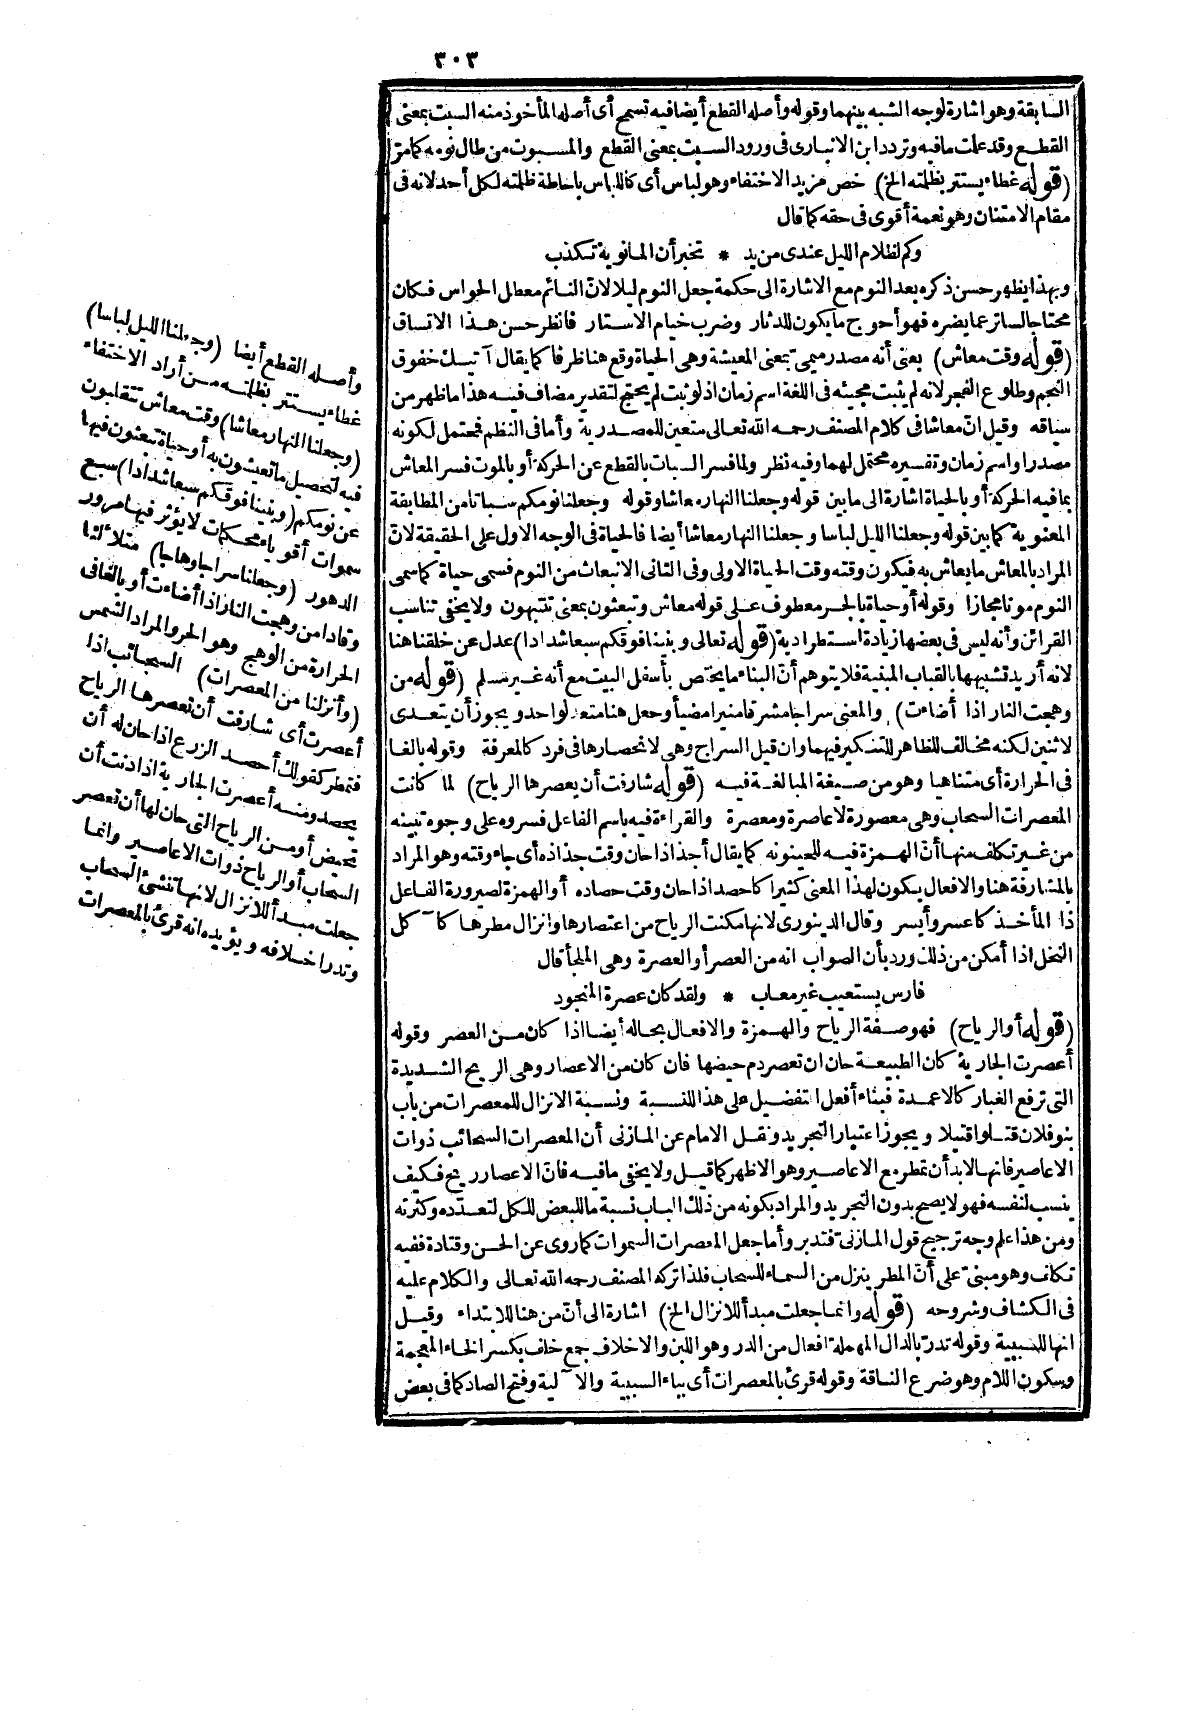 ٣٠٣
السابقة وهو اشارة لوجه الشبه بينهما وقوله وأصله القطع أيضا فيه تسمح أى أصله المأخوذ منه السبت بمعنى
القطع وقد علمت ما فيه وتردد ابن الانبارى فى ورود السبت بمعنى القطع والمسبوت من طال نومه كما مر
(قوله غطاء يستتر بظلمته الخ) خص مزيد الاختفاء وهو لباس أى كاللباس باحاطة ظلمته لكل أحد لانه فى
مقام الامتنان وهو نعمة أقوى فى حقه كما قال
وكم لظلام الليل عندى من يد * تخبر أن المانوية تكذب
وبهذا يظهر حسن ذكره بعد النوم مع الاشارة الى حكمة جعل النوم ليلا لان النائم معطل الحواس فكان
محتاجا لساتر عما يضره فهو أحوج ما يكون للدثار وضرب خيام الاستار فانظر حسن هذا الاتساق
(قوله وقت معاش) يعنى أنه مصدر ميمى بمعنى المعيشة وهى الحياة وقع هنا ظرفا كما يقال آتيك خفوق
النجم وطلوع الفجر لانه لم يثبت مجيئه فى اللغة اسم زمان اذ لو ثبت لم يحتج لتقدير مضاف فيه هذا ما ظهر من
سياقه وقيل ان معاشا فى كلام المصنف رحمه الله تعالى متعين للمصدرية وأما فى النظم فمحتمل لكونه
مصدرا واسم زمان وتفسيره محتمل لهما وفيه نظر ولما فسر السبات بالقطع عن الحركة أو بالموت فسر المعاش
بما فيه الحركة أو بالحياة اشارة الى ما بين قوله وجعلنا النهار معاشا وقوله وجعلنا نومكم سباتا من المطابقة
المعنوية كما بين قوله وجعلنا الليل لباسا وجعلنا النهار معاشا أيضا فالحياة فى الوجه الاول على الحقيقة لان
المراد بالمعاش ما يعاش به فيكون وقته وقت الحياة الاولى وفى الثانى الانبعاث من النوم فسمى حياة كما سمى
النوم موتا مجازا وقوله أو حياة بالجر معطوف على قوله معاش وتبعثون بمعنى تنتبهون ولا يخفى تناسب
القرائن وأنه ليس فى بعضها زيادة استطرادية (قوله تعالى وبنينا فوقكم سبعا شدادا) عدل عن خلقنا هنا
لانه أريد تشبيهها بالقباب المبنية فلا يتوهم أن البناء ما يختص بأسفل البيت مع أنه غير مسلم (قوله من
وهجت النار اذا أضاءت) والمعنى سراجا مشرقا منيرا مضيأ وجعل هنا متعد لواحد ويجوز أن يتعدى
لاثنين لكنه مخالف للظاهر للتنكير فيهما وان قيل السراج وهى لانحصارها فى فرد كالمعرفة وقوله بالغا
فى الحرارة أى متناهيا وهو من صيغة المبالغة فيه (قوله شارفت أن يعصرها الرياح) لما كانت
المعصرات السحاب وهى معصورة لا عاصرة ومعصرة والقراءة فيه باسم الفاعل فسروه على وجوه تبينه
من غير تكلف منها أن الهمزة فيه للحينونه كما يقال أجذ اذا حان وقت جذاذه أى جاء وقته وهو المراد
بالمشارفة هنا والافعال يكون لهذا المعنى كثيرا كأحصد اذا حان وقت حصاده أو الهمزة لصيرورة الفاعل
ذا المأخذ كاعسر وأيسر وقال الدينورى لانها مكنت الرياح من اعتصارها وانزال مطرها كآكل
النخل اذا أمكن من ذلك ورد بأن الصواب انه من العصر أو العصرة وهى الملجأ قال
فارس يستعيب غير معاب * ولقد كان عصرة المنجود
(قوله أو الرياح) فهو صفة الرياح والهمزة والافعال بحاله أيضا اذا كان من العصر وقوله
أعصرت الجارية كان الطبيعة حان ان تعصر دم حيضها فان كان من الاعصار وهى الريح الشديدة
التى ترفع الغبار كالاعمدة فبناء أفعل التفضيل على هذا للنسبة ونسبة الانزال للمعصرات من باب
بنو فلان قتلوا قتيلا ويجوز اعتبار التجريد ونقل الامام عن المازنى أن المعصرات السحائب ذوات
الاعاصير فانها لا بد أن تمطر مع الاعاصير وهو الاظهر كما قيل ولا يخفى ما فيه فان الاعصار ريح فكيف
ينسب لنفسه فهو لا يصح بدون التجريد والمراد بكونه من ذلك الباب نسبة ما للبعض للكل لتعدده وكثرته
ومن هذا علم وجه ترجيح قول المازنى فتدبر وأما جعل المعصرات السموات كما روى عن الحسن وقتادة ففيه
تكلف وهو مبنى على أن المطر ينزل من السماء للسحاب فلذا تركه المصنف رحمه الله تعالى والكلام عليه
فى الكشاف وشروحه (قوله وانما جعلت مبدأ للانزال الخ) اشارة الى أن من هنا للابتداء وقيل
انها للسببية وقوله تدر بالدال المهملة افعال من الدر وهو اللبن والاخلاف جمع خلف بكسر الخاء المعجمة
وسكون اللام وهو ضرع الناقة وقوله قرئ بالمعصرات أى بباء السببية والآلية وفتح الصاد كما فى بعض
وأصله القطع أيضا (وجعلنا الليل لباسا)
غطاء يستتر بظلمته من أراد الاختفاء
(وجعلنا النهار معاشا) وقت معاش تتقلبون
فيه لتحصيل ما تعيشون به أو حياة تبعثون فيها
عن نومكم (وبنينا فوقكم سبعا شدادا) سبع
سموات أقوياء محكمات لا يؤثر فيها مرور
الدهور (وجعلنا سراجا وهاجا) متلألئا
وقادا من وهجت النار اذا أضاءت أو بالغا فى
الحرارة من الوهج وهو الحر والمراد الشمس
(وأنزلنا من المعصرات) السحائب اذا
أعصرت أى شارفت أن تعصرها الرياح
فتمطر كقولك أحصد الزرع اذا حان له أن
يحصد ومنه أعصرت الجارية اذا دنت أن
تحيض أو من الرياح التى حان لها أن تعصر
السحاب أو الرياح ذوات الاعاصير وانما
جعلت مبدأ للانزال لانها تنشئ السحاب
وتدر اخلافه ويؤيده انه قرئ بالمعصرات